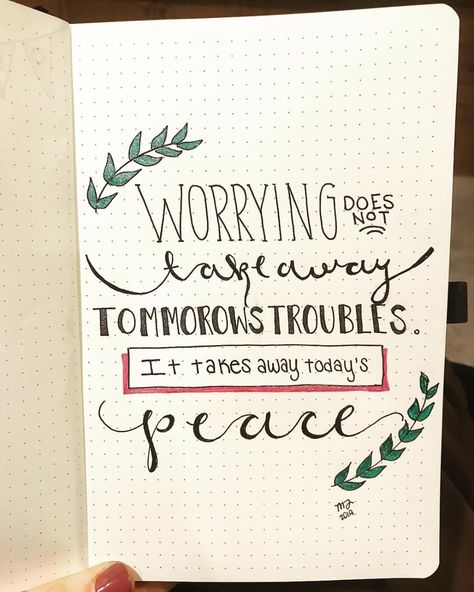 WORRYING DOES NOT
take away
TOMMOROWS TROUBLES.
It takes away today's
peace
2019.